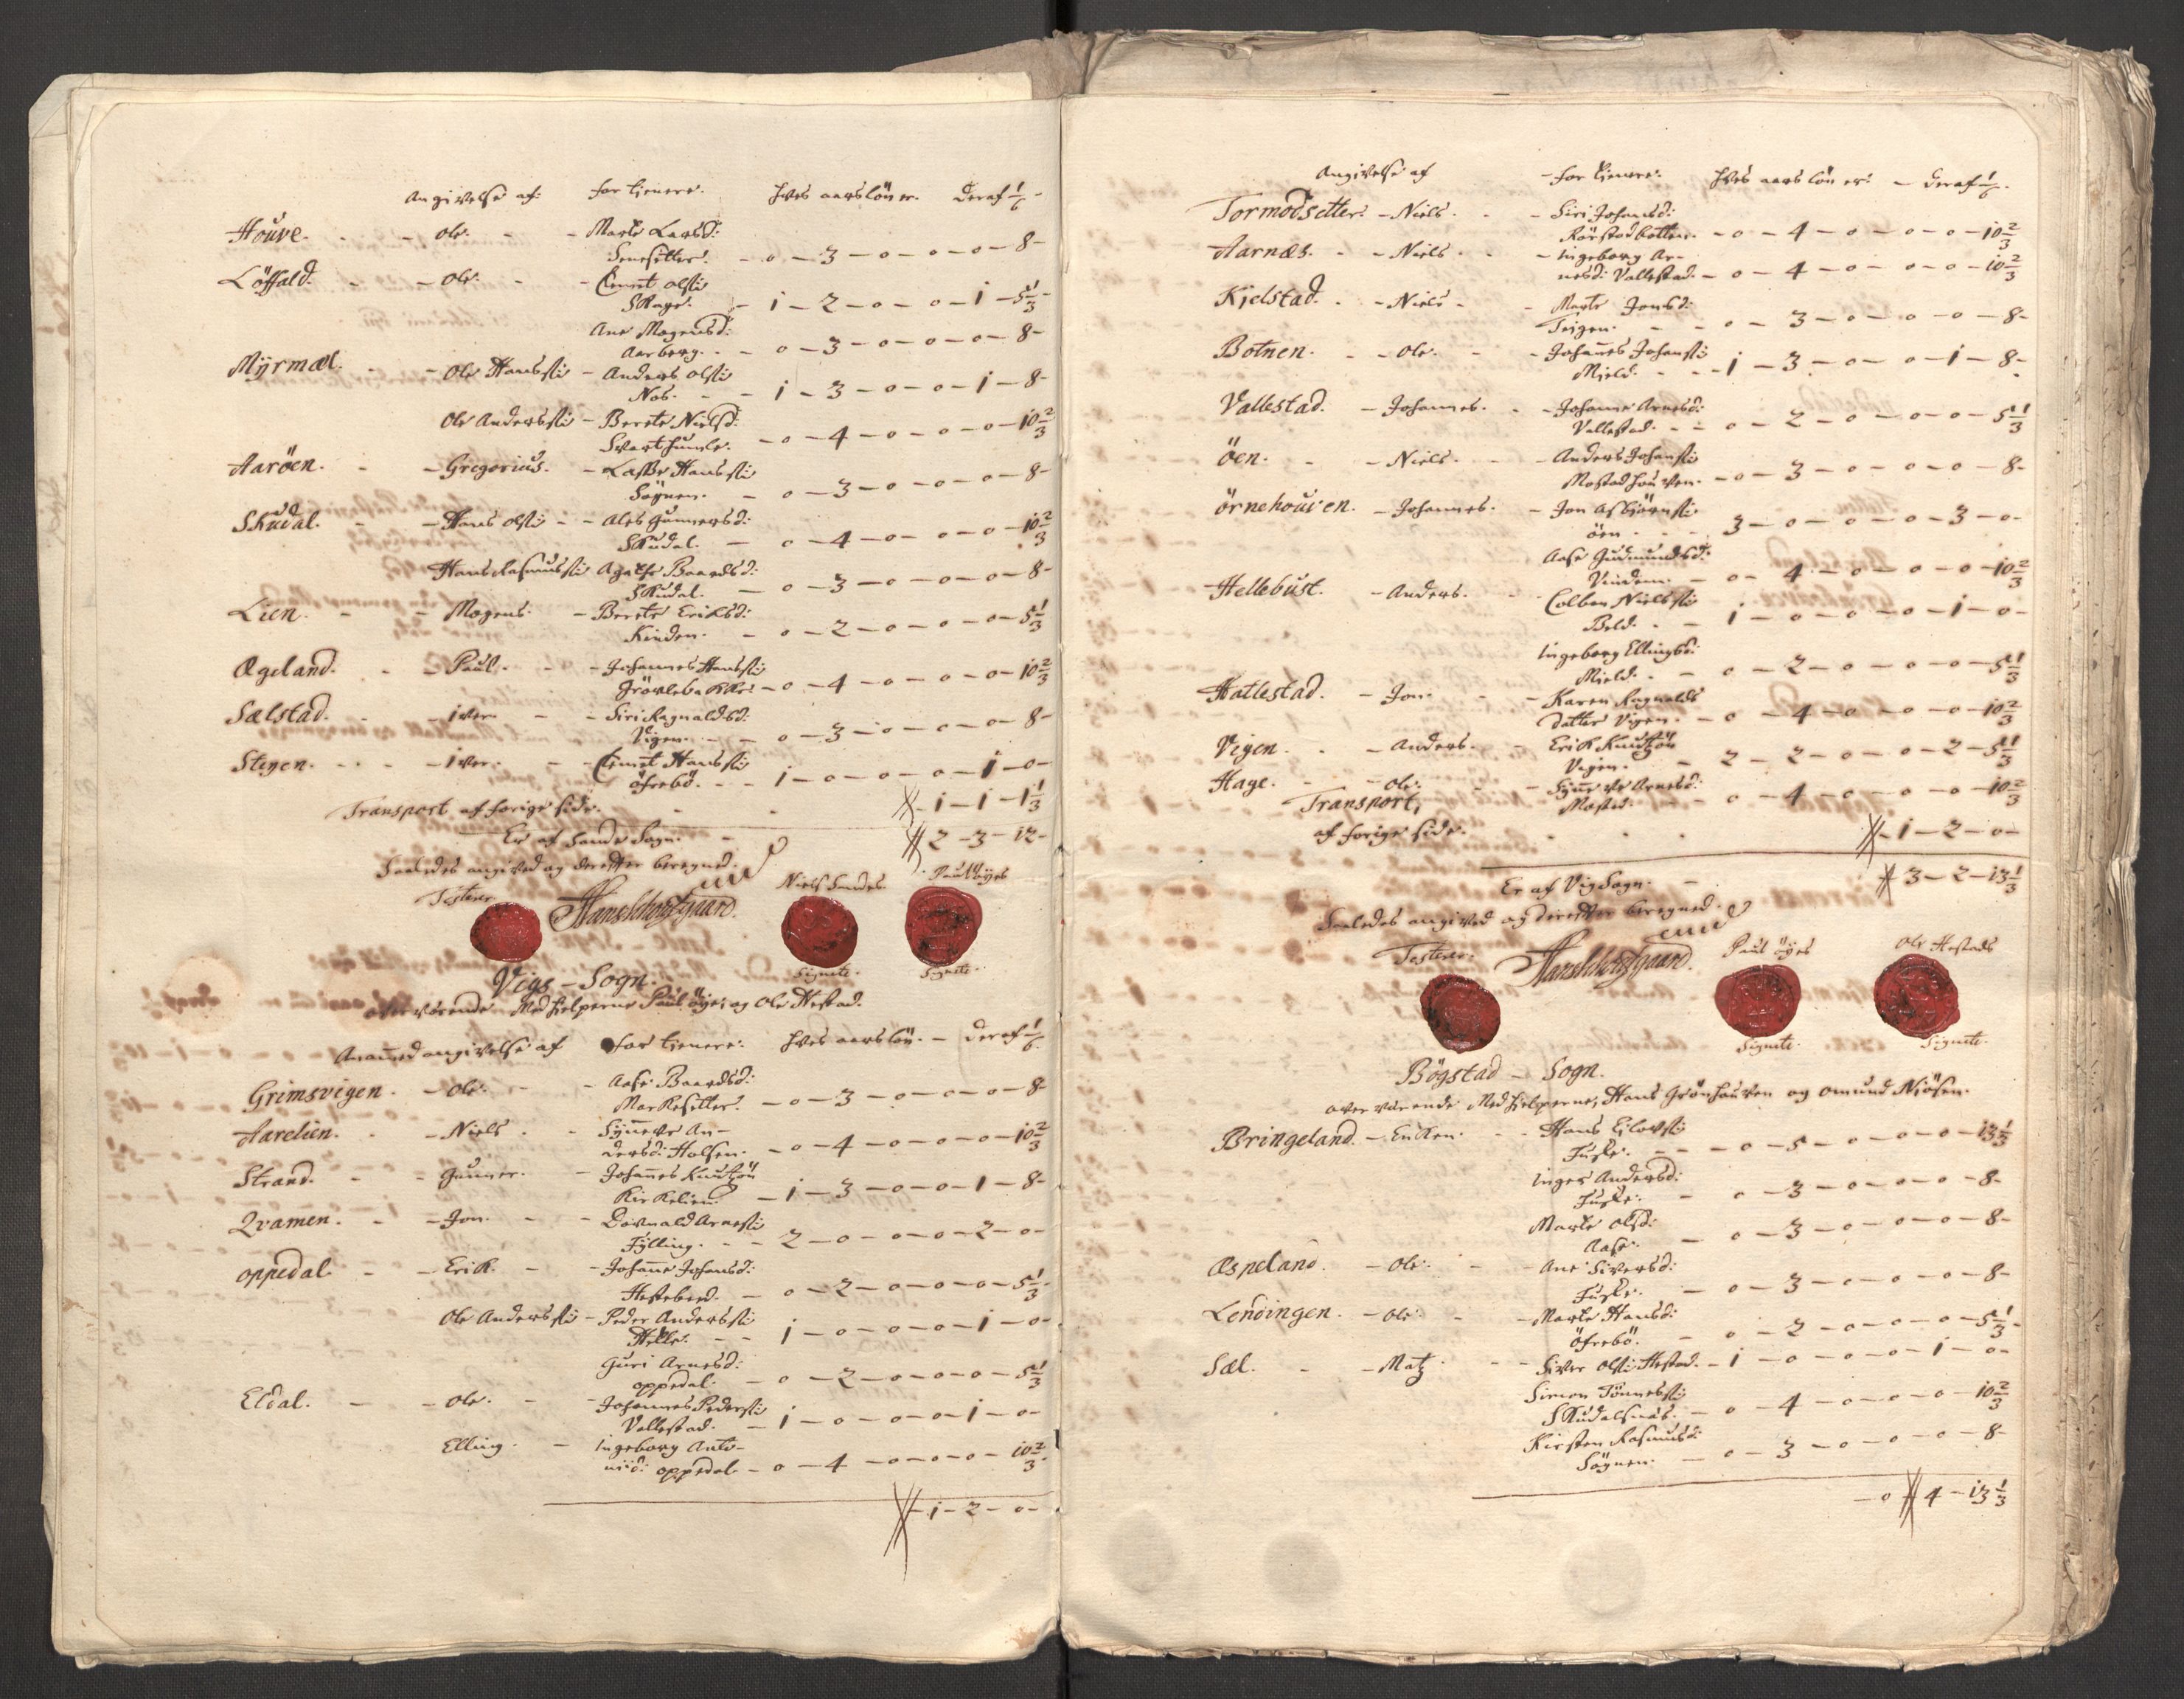 Angivelse af: for tienere. hves aarslön er. deraf 1/6 -
Houve. - ole. - Marte Larsd:
Senesetter. - o - 3 - o - o - o - 8 -
Löffald. - ole. - Clemet olss:
Skage. - 1 - 2 - o - o - 1 - 5 1/3 -
Ane Mogensd:
Aarberg. - o - 3 - o - o - o - 8 -
Myrmæl. - ole Hanss: - Anders olss:
Nos. - 1 - 3 - o - o - 1 - 8 -
ole Anderss: - Berete Nielsd:
Svarthumle. - o - 4 - o - o - o - 10 2/3
Aaröen. - Gregorius. - Lasse Hanss:
Sögnen. - o - 3 - o - o - o - 8 -
Skudal. - Hans olss: - Ales Gunnersd:
Skudal. - o - 4 - o - o - o - 10 2/3
Hans Rasmuss: Agathe Baardsd:
Skudal. - o - 3 - o - o - o - 8 -
Lien. - Mogens. - Berete Eriksd:
Kinden. - o - 2 - o - o - o - 5 1/3
Ægeland. - Paul. - Johannes Hanss:
- o - 4 - o - o - o - 10 2/3
Sælstad. - iver. - Siri Ragnaldsd:
Vigen. - o - 3 - o - o - o - 8 -
Stegen. - iver. - Clemet Hanss:
öfrebö. - 1 - o - o - o - 1 - o -
Transport af forige side. - 1 - 1 - 1 1/3
Er af Sande Sogn. - 2 - 3 - 12 -
Saaledes angived og derefter beregned.
Testerer Hans Schougaard. Niels Sandes Paul öyes
Signete. Signete.
Vigs - Sogn.
overværende Medhielperne Paul öye, og Ole Hestad.
Anammed angivelse af for tienere. hves aarslön. - deraf 1/6.
Grimsvigen. - ole. - Aase Baardsd:
Markesetter. - o - 3 - o - o - o - 8 -
Aarelien. - Niels. - Synneve An-
dersd: Holsen. - o - 4 - o - o - o - 10 2/3
Strand. - Gunner. - Johannes Knutzön
Kirkelien. - 1 - 3 - o - o - 1 - 8 -
Qvamen. - Jon. - Arness:
Fylling. - 2 - o - o - o - 2 - o -
oppedal. - Erik. - Johanne Johansd:
- o - 2 - o - o - o - 5 1/3
Ole Anderss: - Peder Anderss:
Helle. - 1 - o - o - o - 1 - o -
Guri Arnesd:
oppedal. - o - 2 - o - o - o - 5 1/3
Eldal. - ole. - Johannes Pederss:
Vallestad. - 1 - o - o - o - 1 - o -
Elling. - ingeborg Anto-
niid: oppedal - o - 4 - o - o - o - 10 2/3
- 1 - 2 - o -
Angivelse af - for tienere. hves aarslön er. - deraf 1/6.
Tormodsetter. - Niels. - Siri Johansd:
Rörstadbotten. - o - 4 - o - o - o - 10 2/3
Aarnæs. - Niels. - ingeborg Ar-
nesd: Vallestad. - o - 4 - o - o - o - 10 2/3
Kielstad. - Niels - Marte Jonsd:
Teigen. - o - 3 - o - o - o - 8 -
Botnen. - ole. - Johannes Johanss:
Mield. - 1 - 3 - o - o - 1 - 8 -
Vallestad. - Johannes. - Johanne Arnesd:
Vallestad. - o - 2 - o - o - o - 5 1/3
öen. - Niels. - Anders Johanss:
Mostadhouven. - o - 3 - o - o - o - 8 -
örnehouven. - Johannes. - Jon Asbiörnss:
öen. - 3 - o - o - o - 3 - o -
Aase Gudmundsd:
- o - 4 - o - o - o - 10 2/3
Hellebust. - Anders. - Colben Nielss:
Beld. - 1 - o - o - o - 1 - o -
ingeborg Ellingsd:
Mield. - o - 2 - o - o - o - 5 1/3
Hatlestad. - Jon. - Karen Ragnalds
datter Vigen. - o - 4 - o - o - o - 10 2/3
Vigen. - Anders. - Erik Knutzön
Vigen. - 2 - 2 - o - o - 2 - 5 1/3
Hage. - ole. - Synneve Arnesd:
Mosted. - o - 4 - o - o - o - 10 2/3
Transport,
af forige side. - 1 - 2 - o -
Er af Vig Sogn. - 3 - 2 - 13 1/3
Saaledes angived og derefter beregned.
Testerer. Hans Schougaard. Paul öyes Ole Hestads
Signete. Signete.
Bögstad - Sogn.
overværende Medhielperne, Hans Grönhauven og omund Niösen.
Bringeland. - Enken. - Hans Eilerss:
Fuske. - o - 5 - o - o - o - 13 1/3
inger Andersd:
Fuske. - o - 3 - o - o - o - 8 -
Marte olsd:
Aase. - o - 3 - o - o - o - 8 -
Æspeland. - ole. - Ane Siversd:
Fuske. - o - 3 - o - o - o - 8 -
Lendingen. - ole. - Marte Hansd:
öfrebö. - o - 2 - o - o - o - 5 1/3 -
Sæl. - Matz - Siver olss: Hestad. - 1 - o - o - o - 1 - o -
Simon Tönness:
Skudalsnæs. - o - 4 - o - o - o - 10 2/3
Kirsten Rasmusd:
Sögnen. - o - 3 - o - o - o - 8 -
- o - 4 - 13 1/3